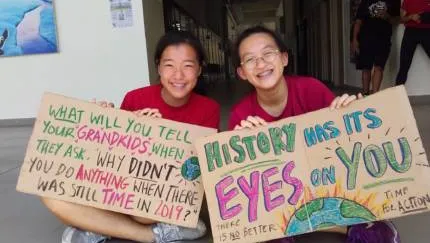 WHAT WILL YOU TELL
YOUR "GRANDKIDS" WHEN
THEY ASK. WHY DIDN'T
YOU DO ANYTHING WHEN THERE
WAS STILL TIME IN 2019?
HISTORY HAS ITS
EYES ON YOU
THERE IS NO BETTER
TIME FOR ACTION!